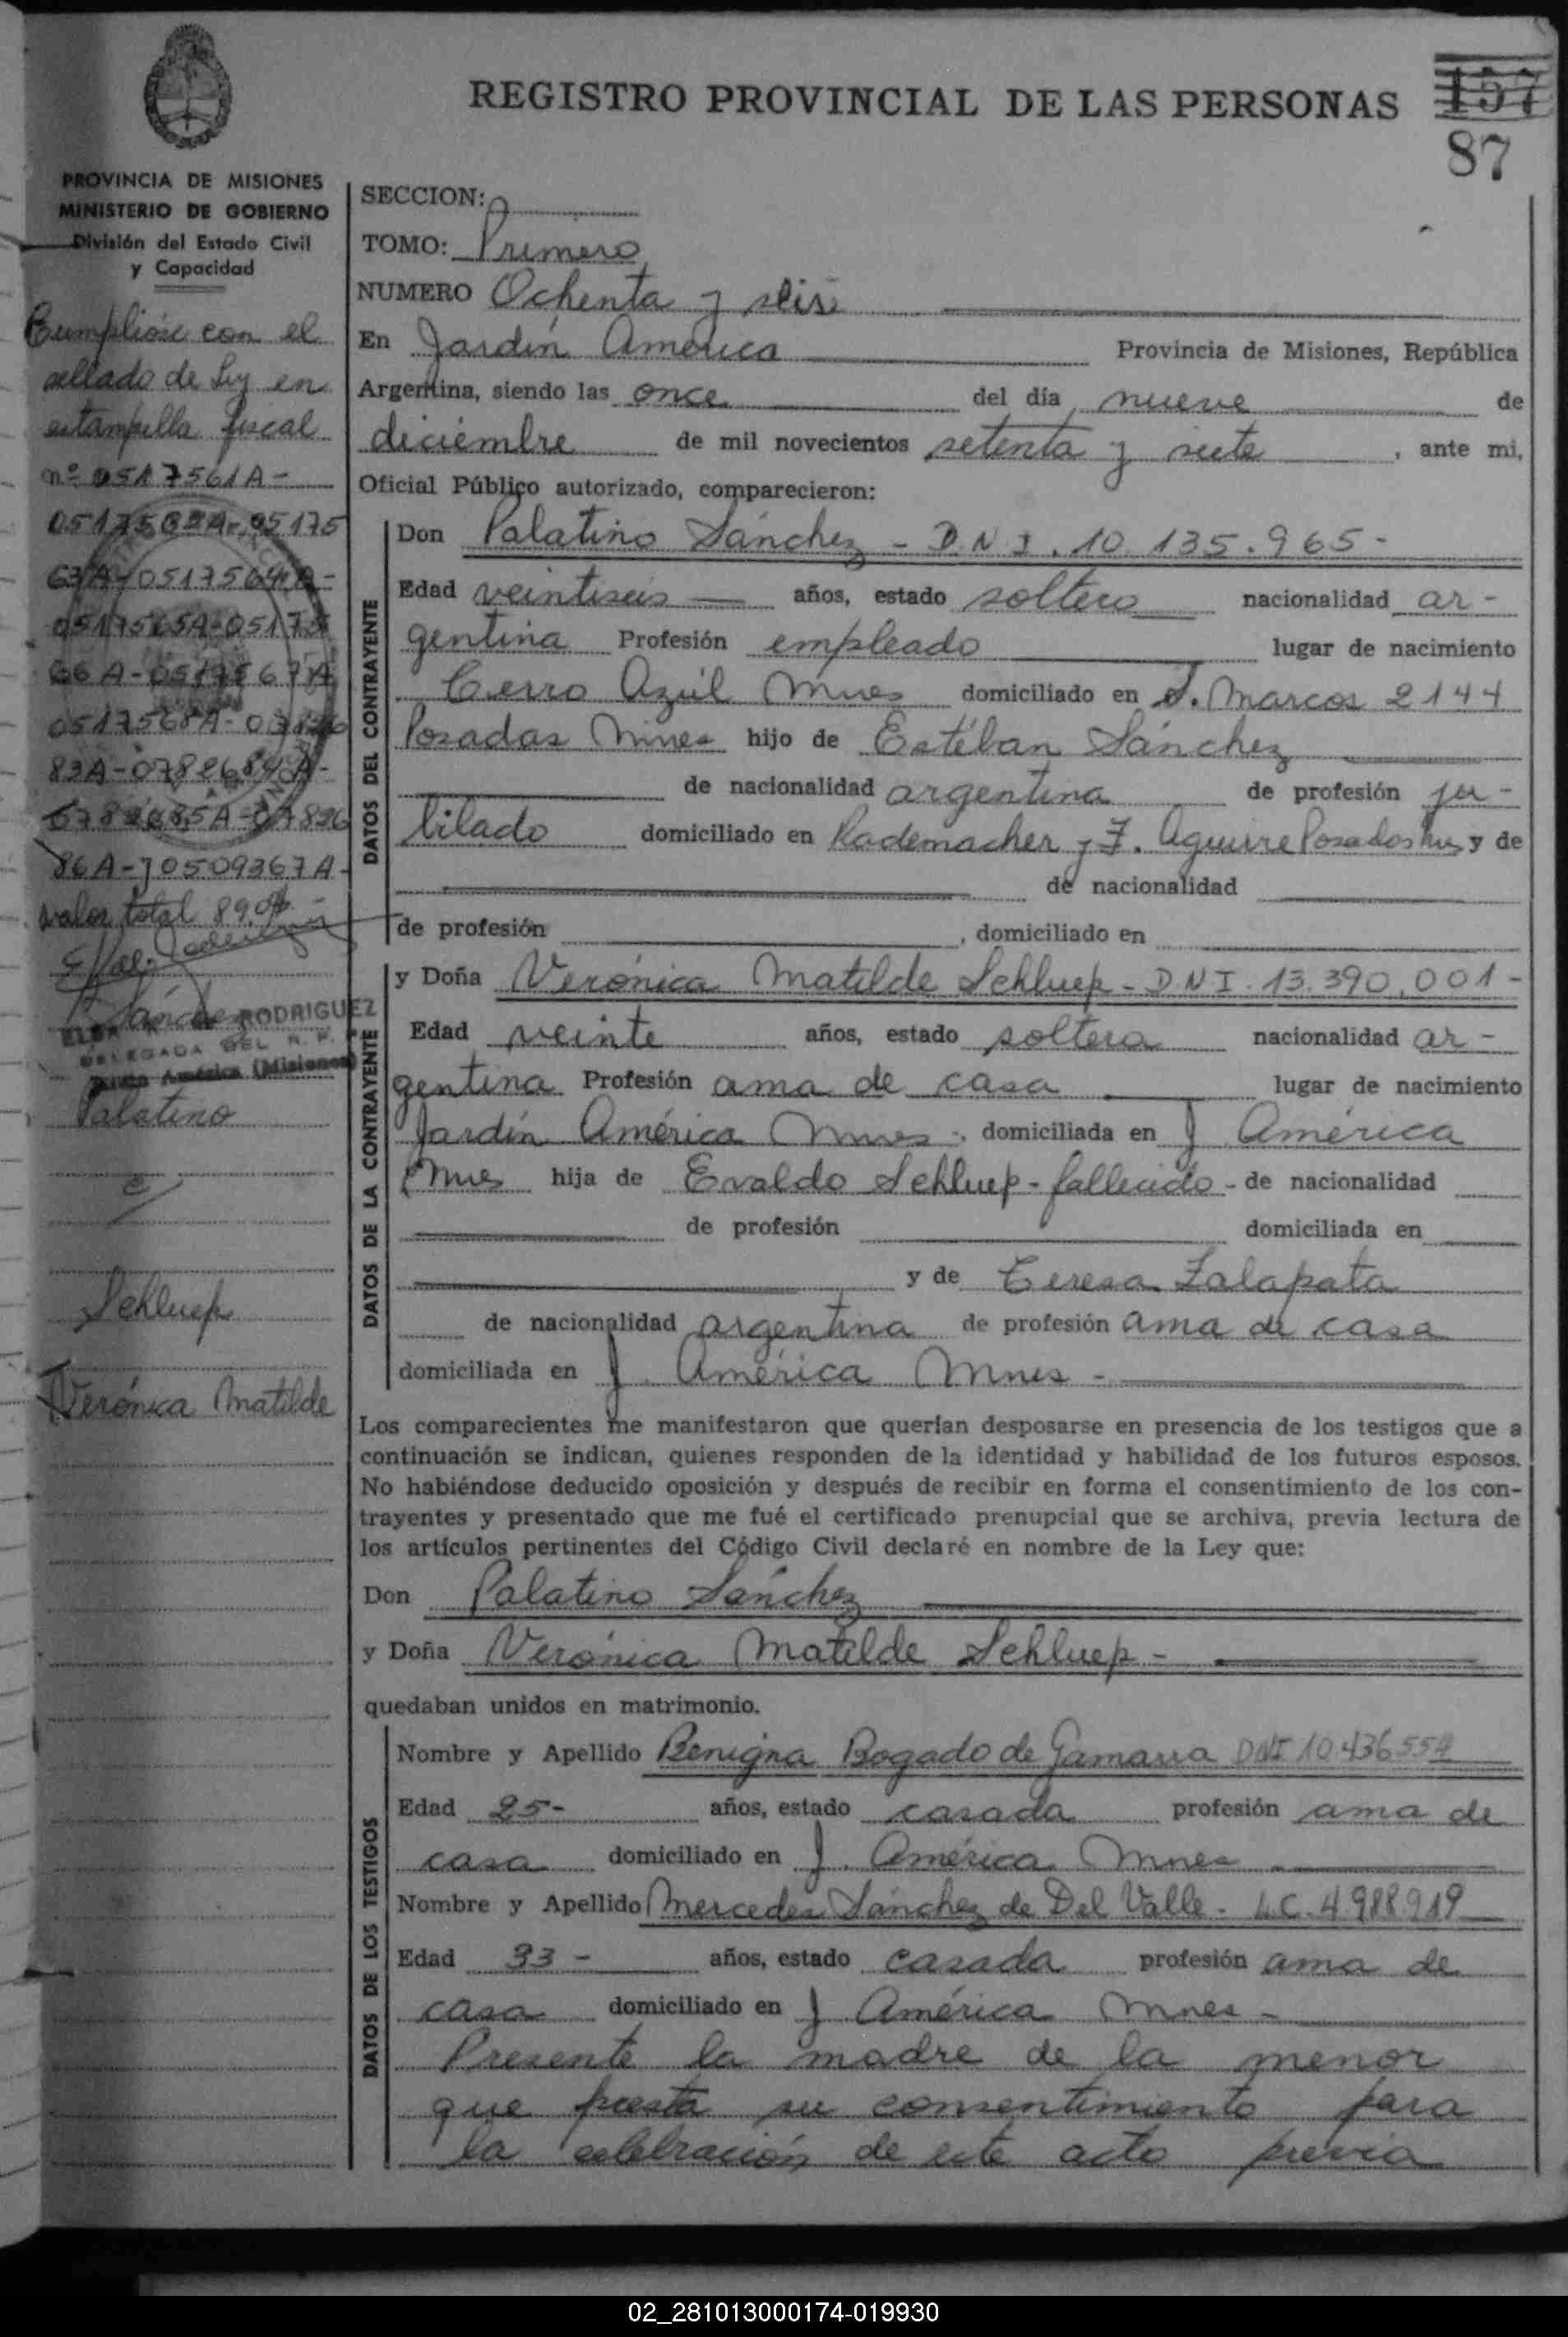 REGISTRO PROVINCIAL DE LAS PERSONAS
157
87
PROVINCIA DE MISIONES
MINISTERIO DE GOBIERNO
División del Estado Civil
y Capacidad
Cumplióse con el
sellado de Ley en
estampilla fiscal
nº 0517561A-
0517562A-05175
63A-0517564A-
0517565A-05175
66A-0517567A
0517568A-07826
83A-0782684A-
0782685A-07826
86A-J0509367A-
valor total 89.04
Sánchez
RODRIGUEZ
DELEGADA DEL R. P.
América (Misiones)
Palatino
c/
Schluep
Verónica Matilde
SECCION:
TOMO: Primero
NUMERO Ochenta y seis
En Jardín América Provincia de Misiones, República
Argentina, siendo las once del día nueve de
diciembre de mil novecientos setenta y siete, ante mi,
Oficial Público autorizado, comparecieron:
DATOS DEL CONTRAYENTE
Don Palatino Sánchez - D.N.I. 10.135.965-
Edad veintiseis años, estado soltero nacionalidad ar-
gentina Profesión empleado lugar de nacimiento
Cerro Azúl Mnes domiciliado en S. Marcos 2144
Posadas Mnes hijo de Estéban Sánchez
de nacionalidad argentina de profesión ju-
bilado domiciliado en Rademacher y F. Aguirre Posadas Mnes y de
de nacionalidad
de profesión , domiciliado en
DATOS DE LA CONTRAYENTE
y Doña Verónica Matilde Schluep - D.N.I. 13.390.001-
Edad veinte años, estado soltera nacionalidad ar-
gentina Profesión ama de casa lugar de nacimiento
Jardín América Mnes, domiciliada en J América
Mnes hija de Evaldo Schluep - fallecido - de nacionalidad
de profesión domiciliada en
y de Teresa Zalapata
de nacionalidad argentina de profesión ama de casa
domiciliada en J. América Mnes -
Los comparecientes me manifestaron que querían desposarse en presencia de los testigos que a
continuación se indican, quienes responden de la identidad y habilidad de los futuros esposos.
No habiéndose deducido oposición y después de recibir en forma el consentimiento de los con-
trayentes y presentado que me fué el certificado prenupcial que se archiva, previa lectura de
los artículos pertinentes del Código Civil declaré en nombre de la Ley que:
Don Palatino Sánchez
y Doña Verónica Matilde Schluep -
quedaban unidos en matrimonio.
DATOS DE LOS TESTIGOS
Nombre y Apellido Benigna Bogado de Gamarra DNI 10.436554
Edad 25- años, estado casada profesión ama de
casa domiciliado en J. América Mnes
Nombre y Apellido Mercedes Sánchez de Del Valle - L.C. 4.988.919
Edad 33- años, estado casada profesión ama de
casa domiciliado en J América Mnes -
Presente la madre de la menor
que presta su consentimiento para
la celebración de este acto previa
02_281013000174-019930